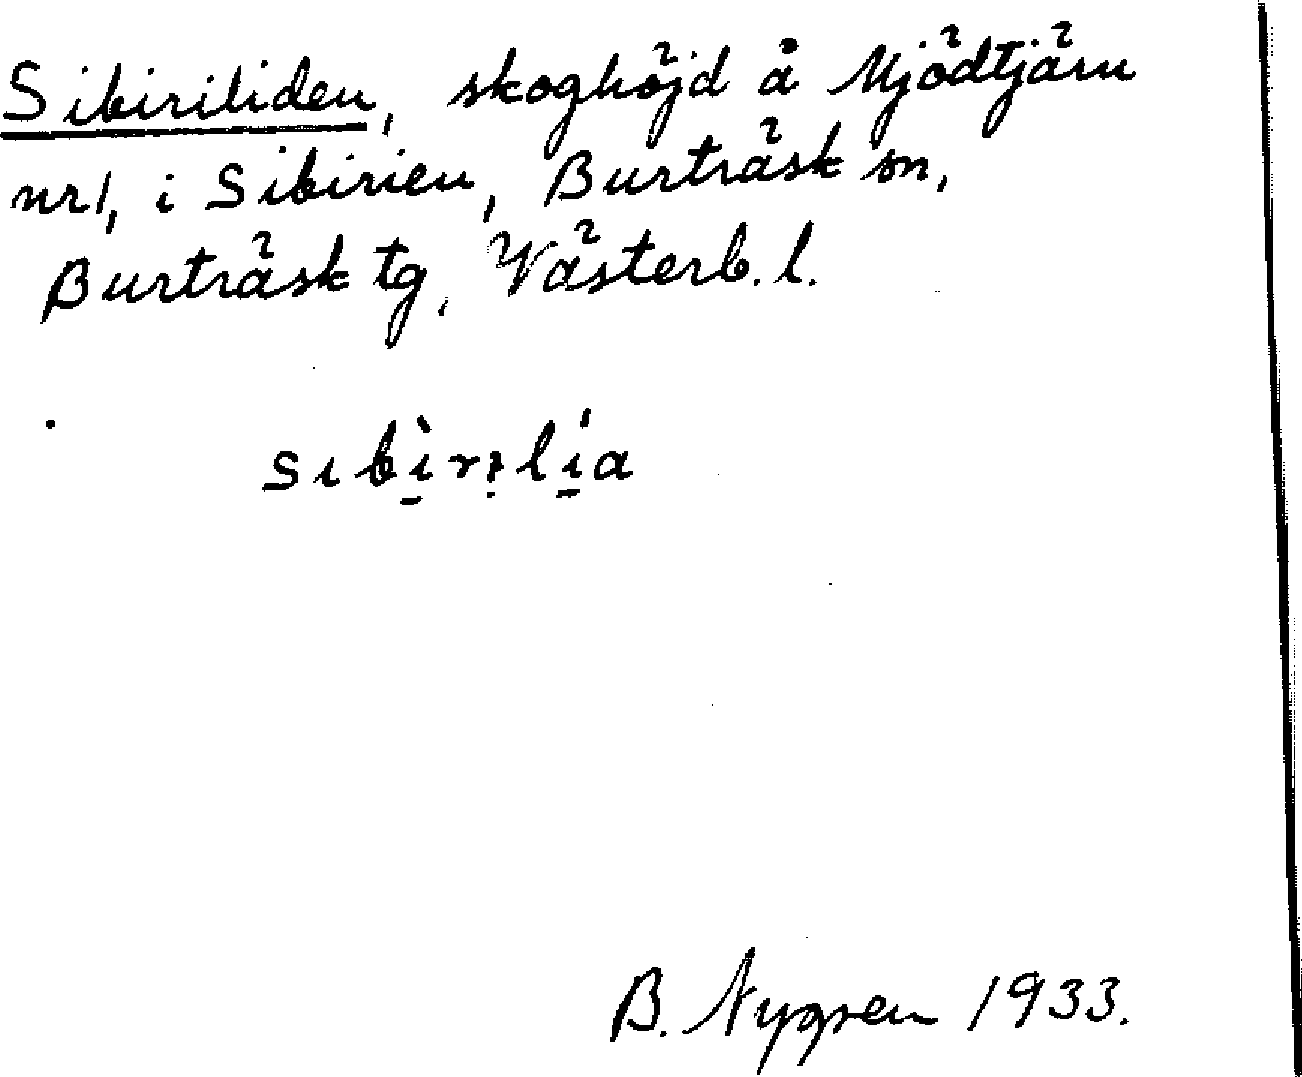 Sibiriliden, skoghöjd å Mjödtjärn
nr 1, i Sibirien, Burträsk sn,
Burträsk tg, Västerb. l.
sıbìrılía
B. Nygren 1933.